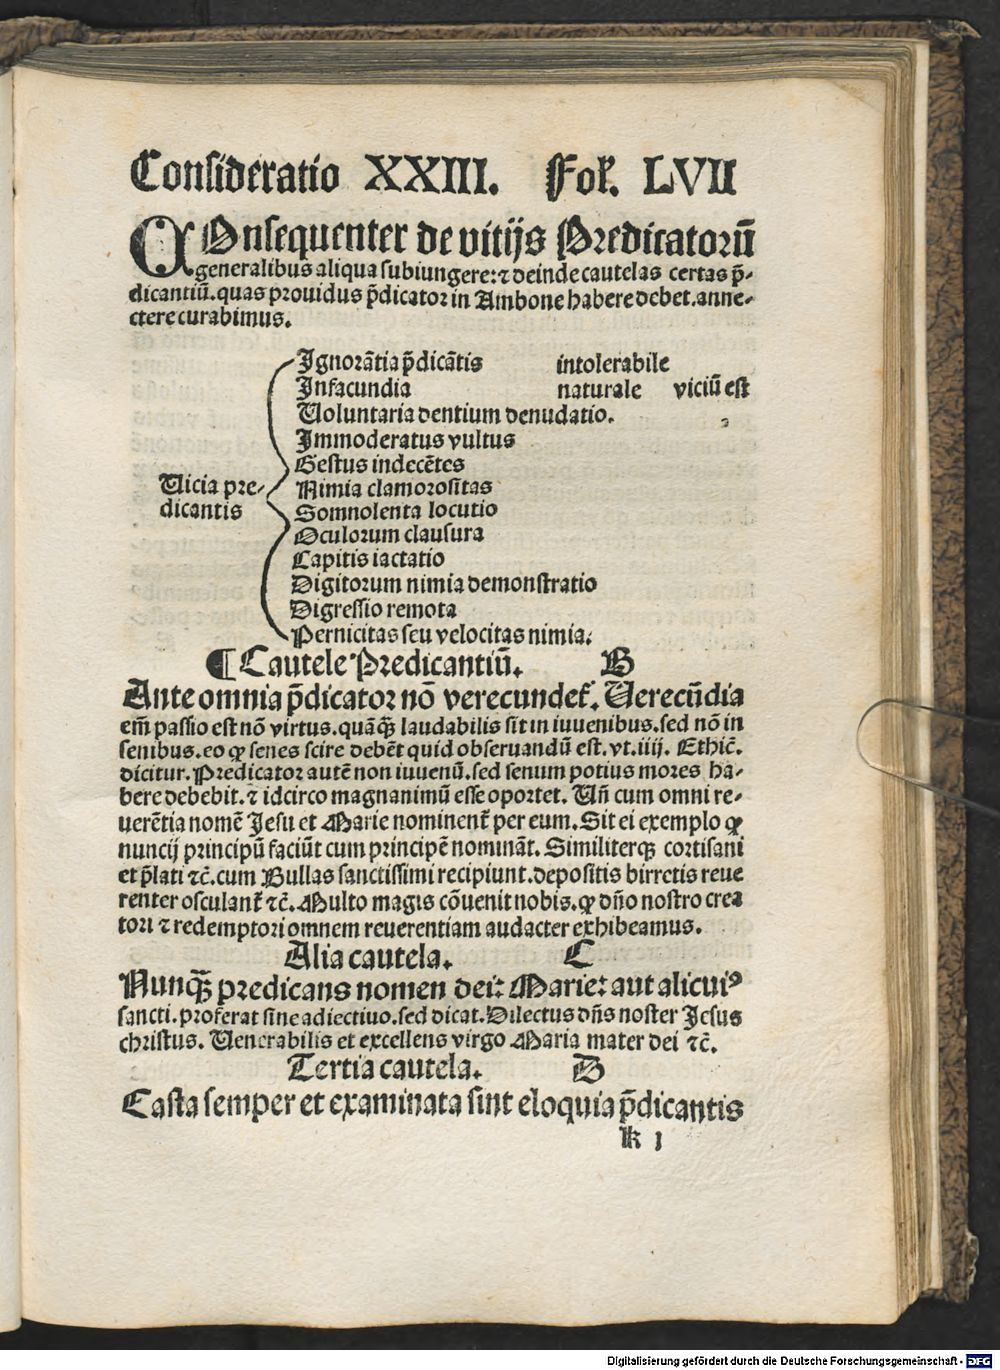 Consideratio XXIII. Fol. LVII
COnsequenter de vitijs Predicatorũ
generalibus aliqua subiungere: ⁊ deinde cautelas certas p̃-
dicantiũ. quas prouidus p̃dicator in Ambone habere debet. anne-
ctere curabimus.
Ignorãtia p̃dicãtis intolerabile
Infacundia naturale viciũ est
Uoluntaria dentium denudatio.
Immoderatus vultus
Gestus indecẽtes
Uicia pre- Nimia clamorositas
dicantis Somnolenta locutio
Oculorum clausura
Capitis iactatio
Digitorum nimia demonstratio
Digressio remota
Pernicitas seu velocitas nimia.
¶ Cautele Predicantiũ. B
Ante omnia p̃dicator nõ verecundet᷑. Uerecũdia
em̃ passio est nõ virtus. quãqꝫ laudabilis sit in iuuenibus. sed nõ in
senibus. eo ꝙ senes scire debẽt quid obseruandũ est. vt. iiij. Ethic̃.
dicitur. Predicator autẽ non iuuenũ. sed senum potius mores ha-
bere debebit. ⁊ idcirco magnanimũ esse oportet. Uñ cum omni re-
uerẽtia nomẽ Jesu et Marie nominent᷑ per eum. Sit ei exemplo ꝙ
nuncij principũ faciũt cum principẽ nominãt. Similiterqꝫ cortisani
et p̃lati ⁊c̃. cum Bullas sanctissimi recipiunt. depositis birretis reue
renter osculant᷑ ⁊c̃. Multo magis cõuenit nobis. ꝙ dño nostro crea
tori ⁊ redemptori omnem reuerentiam audacter exhibeamus.
Alia cautela. C
Nunqꝫ̃ predicans nomen dei: Marie: aut alicuiꝰ
sancti. proferat sine adiectiuo. sed dicat. Dilectus dñs noster Jesus
christus. Uenerabilis et excellens virgo Maria mater dei ⁊c̃.
Tertia cautela. D
Casta semper et examinata sint eloquia p̃dicantis
k 1
Digitalisierung gefördert durch die Deutsche Forschungsgemeinschaft - DFG